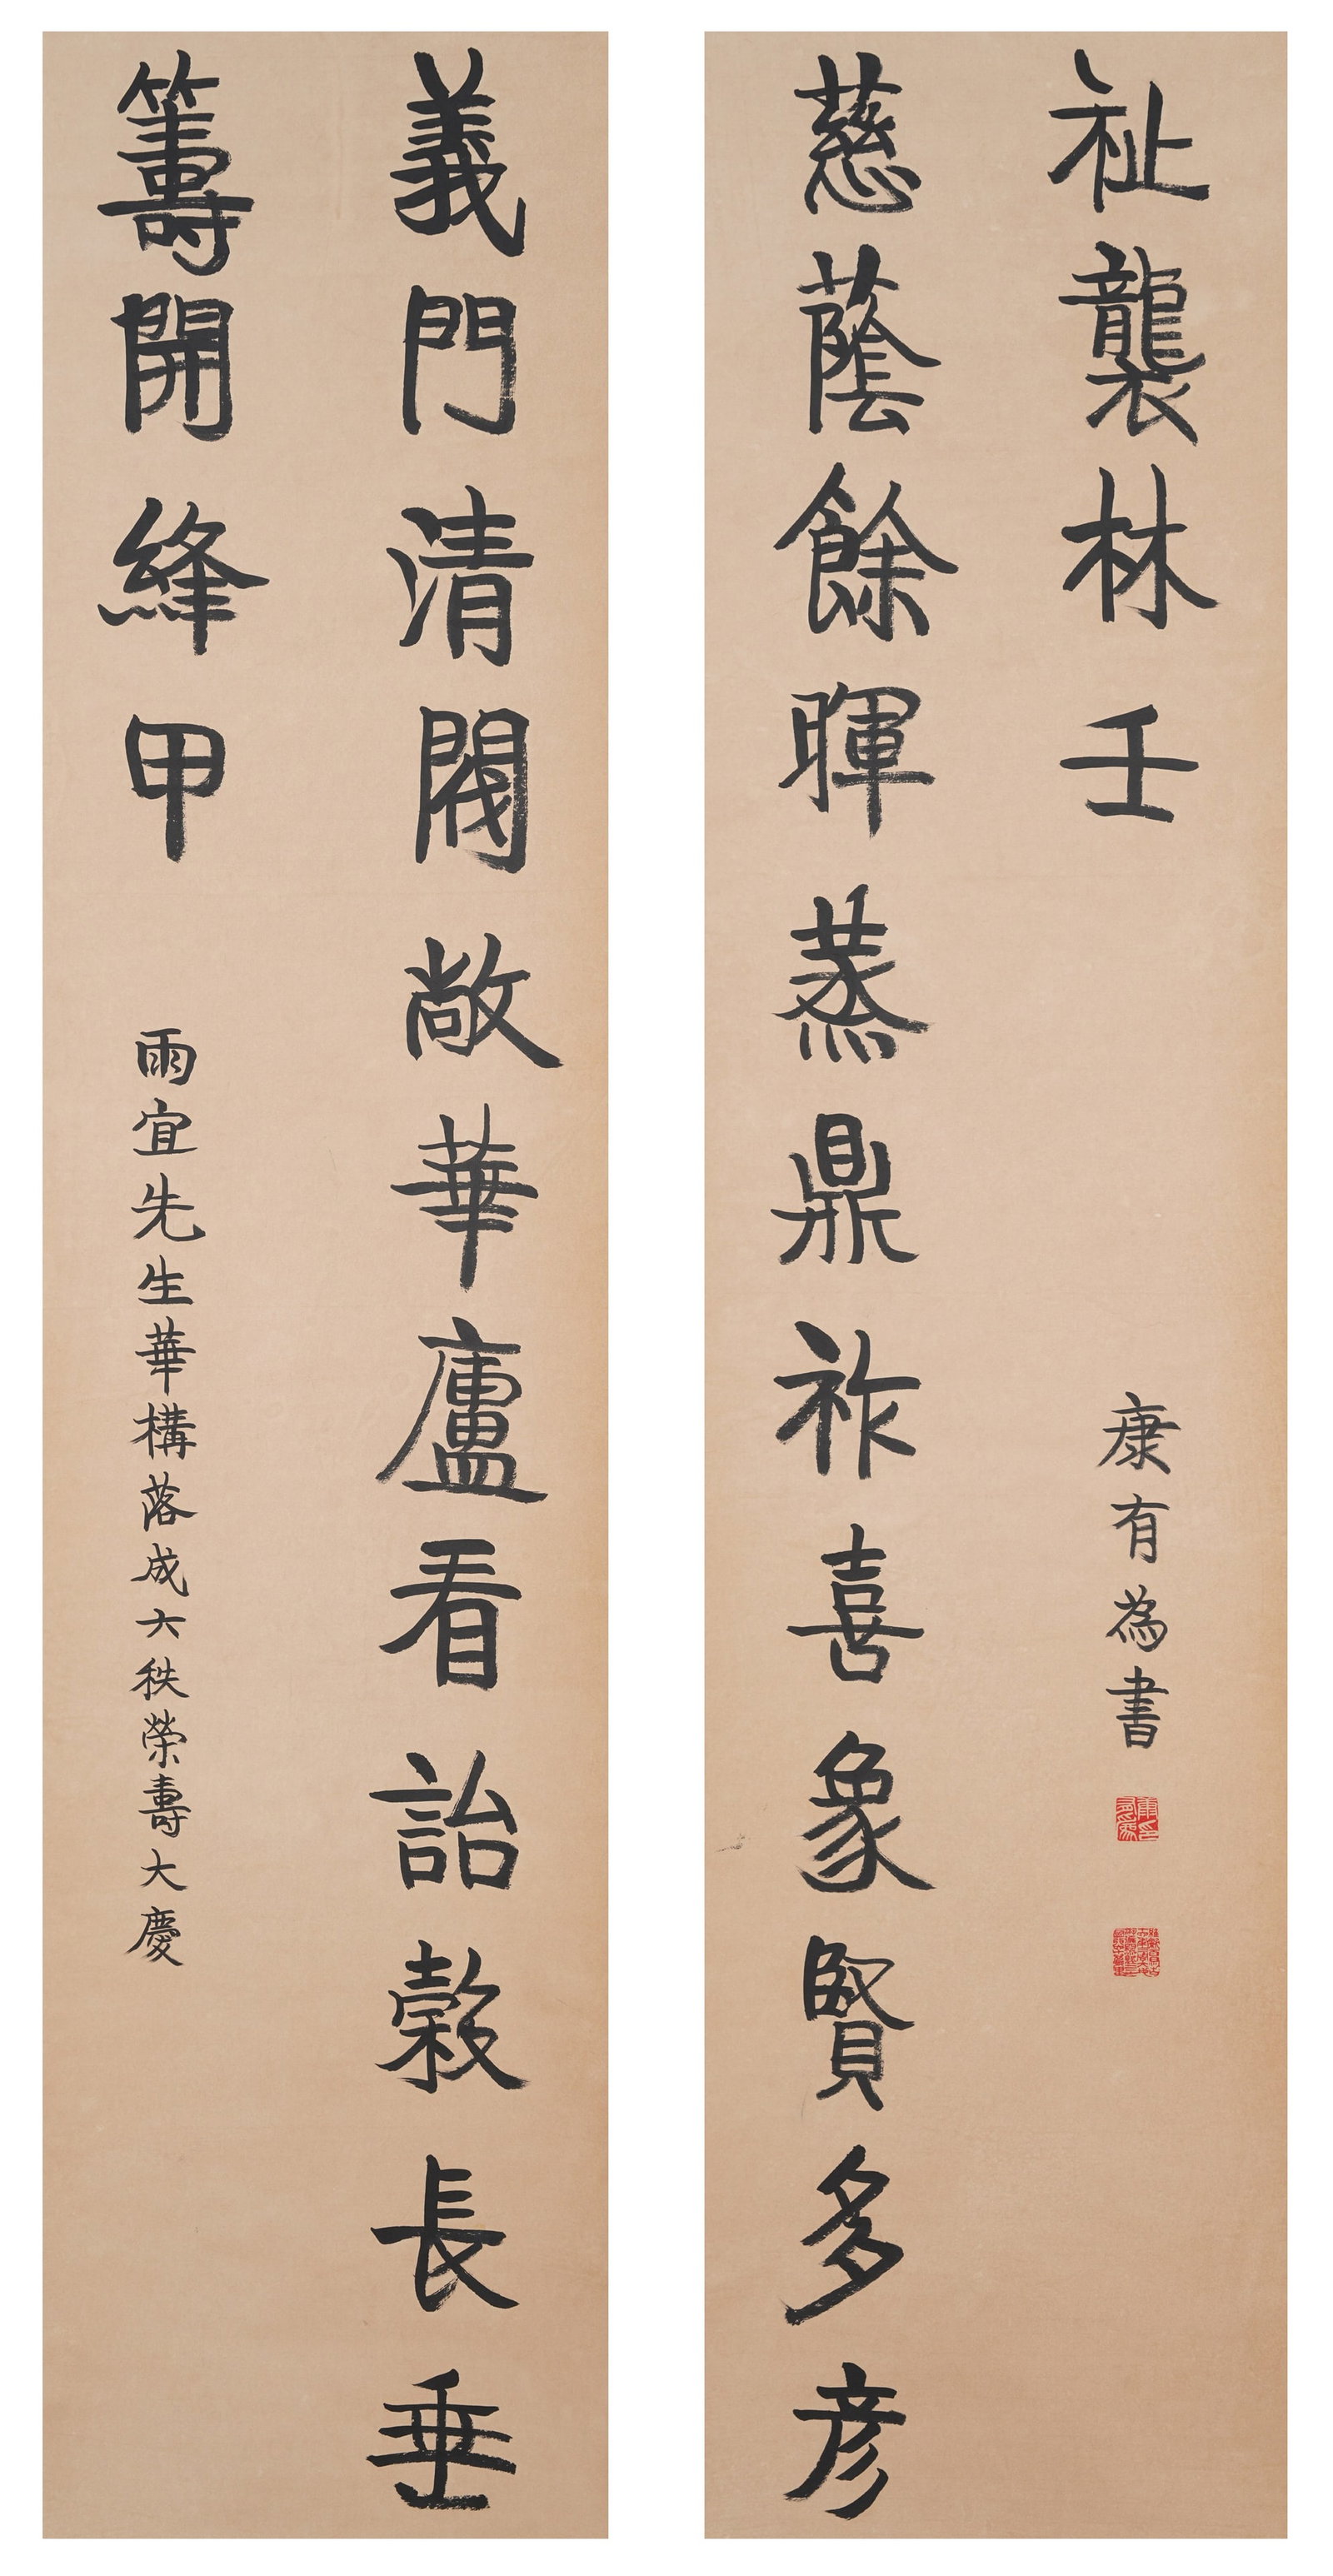 義門清閥敞華廬看詒穀長垂
籌開絳甲
雨宜先生華構落成六秩榮壽大慶
慈蔭餘暉蒸鼎祚喜象賢多彥
祉襲林壬
康有為書
康印有為